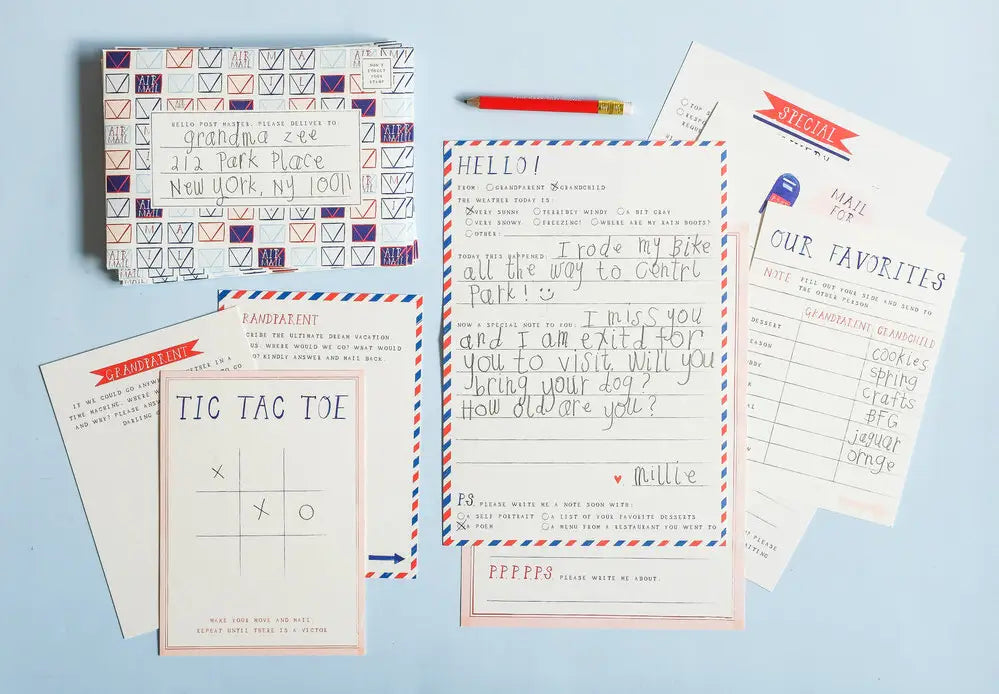 AIR MAIL
DON'T FORGET YOUR STAMP
HELLO POST MASTER, PLEASE DELIVER TO:
grandma zee
212 Park Place
New York, NY 10011
GRANDPARENT
IF WE COULD GO
TIME MACHINE, WHERE
AND WHY? PLEASE
DARLING
RANDPARENT
CRIBE THE ULTIMATE DREAM VACATION
US. WHERE WOULD WE GO? WHAT WOULD
KINDLY ANSWER AND MAIL BACK.
TIC TAC TOE
X
X O
MAKE YOUR MOVE AND MAIL.
REPEAT UNTIL THERE IS A VICTOR
HELLO!
FROM: GRANDPARENT GRANDCHILD
THE WEATHER TODAY IS:
VERY SUNNY TERRIBLY WINDY A BIT GRAY
VERY SNOWY FREEZING! WHERE ARE MY RAIN BOOTS?
OTHER:
TODAY THIS HAPPENED: I rode my Bike
all the way to Centrl
Park! :)
NOW A SPECIAL NOTE TO YOU: I miss you
and I am exitd for
you to visit. Will you
bring your dog?
How old are you?
♥ Millie
P.S. PLEASE WRITE ME A NOTE SOON WITH:
A SELF PORTRAIT A LIST OF YOUR FAVORITE DESSERTS
A POEM A MENU FROM A RESTAURANT YOU WENT TO
P.P.P.P.P.S. PLEASE WRITE ME ABOUT:
SPECIAL
MAIL
FOR
OUR FAVORITES
NOTE FILL OUT YOUR SIDE AND SEND TO
THE OTHER PERSON
GRANDPARENT GRANDCHILD
DESSERT cookies
EASON spring
crafts
BFG
jaguar
ornge
PLEASE
AITING